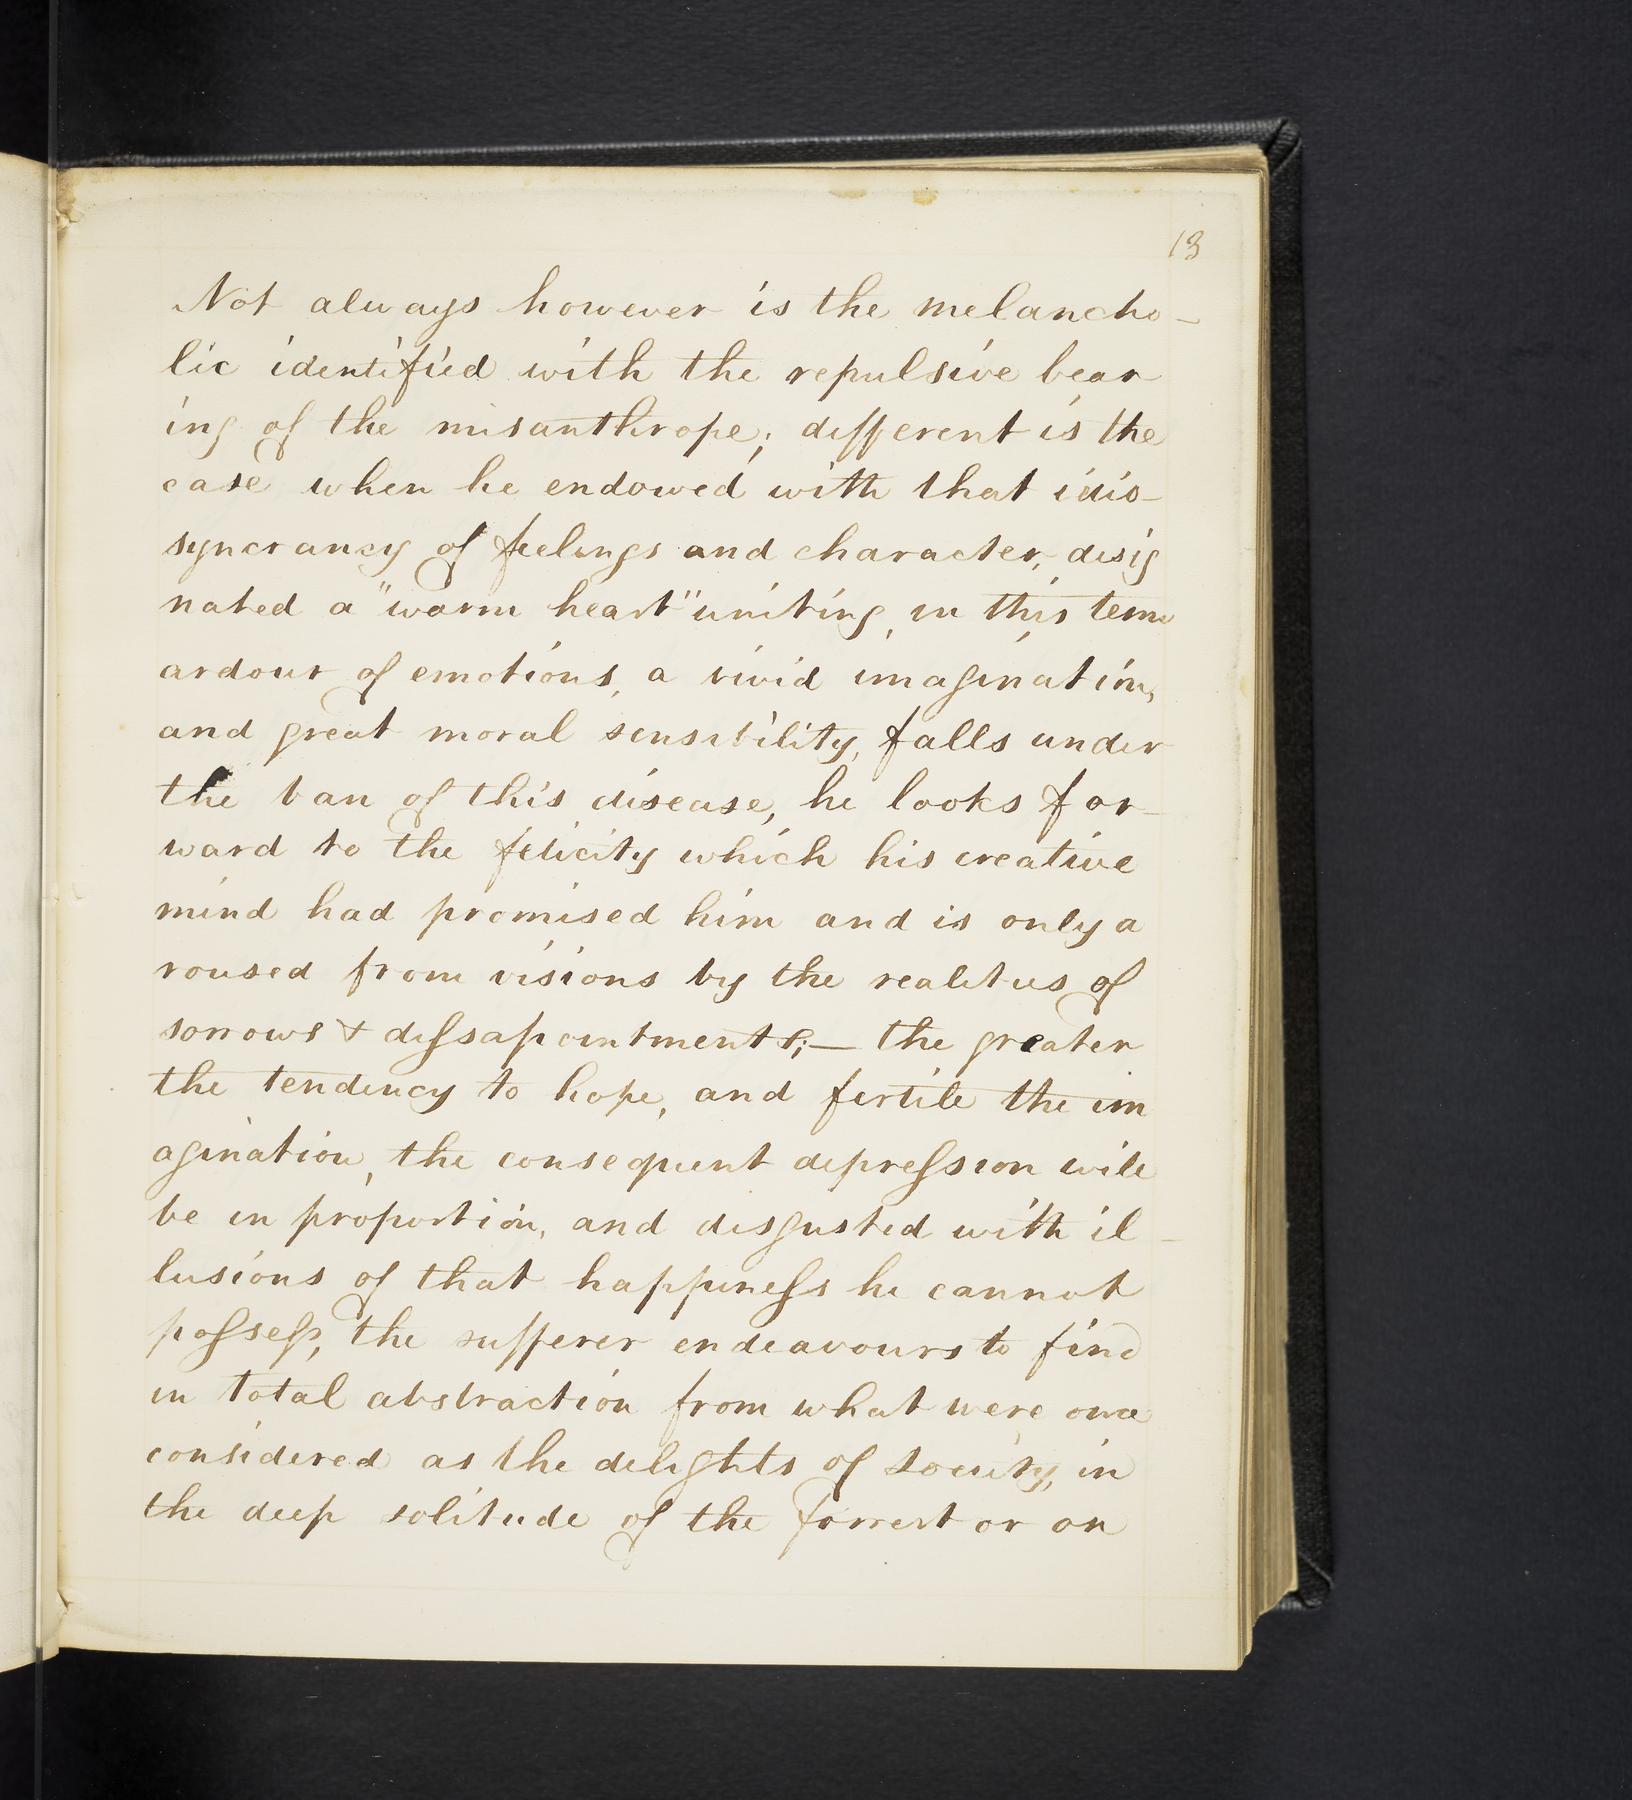 13
Not always however is the melancho-
lic identified with the repulsive bear
ing of the misanthrope; different is the
case when he endowed with that idio-
syncrancy of feelings and character, desig
nated a "warm heart" uniting, in this term
ardour of emotions, a vivid imagination,
and great moral sensibility, falls under
the ban of this disease, he looks for-
ward to the felicity which his creative
mind had promised him and is only a
roused from visions by the realities of
sorrows & dissapointments;— the greater
the tendency to hope, and fertile the im
agination, the consequent depression will
be in proportion, and disgusted with il-
lusions of that happiness he cannot
possess, the sufferer endeavours to find
in total abstraction from what were once
considered as the delights of society, in
the deep solitude of the forrest or on